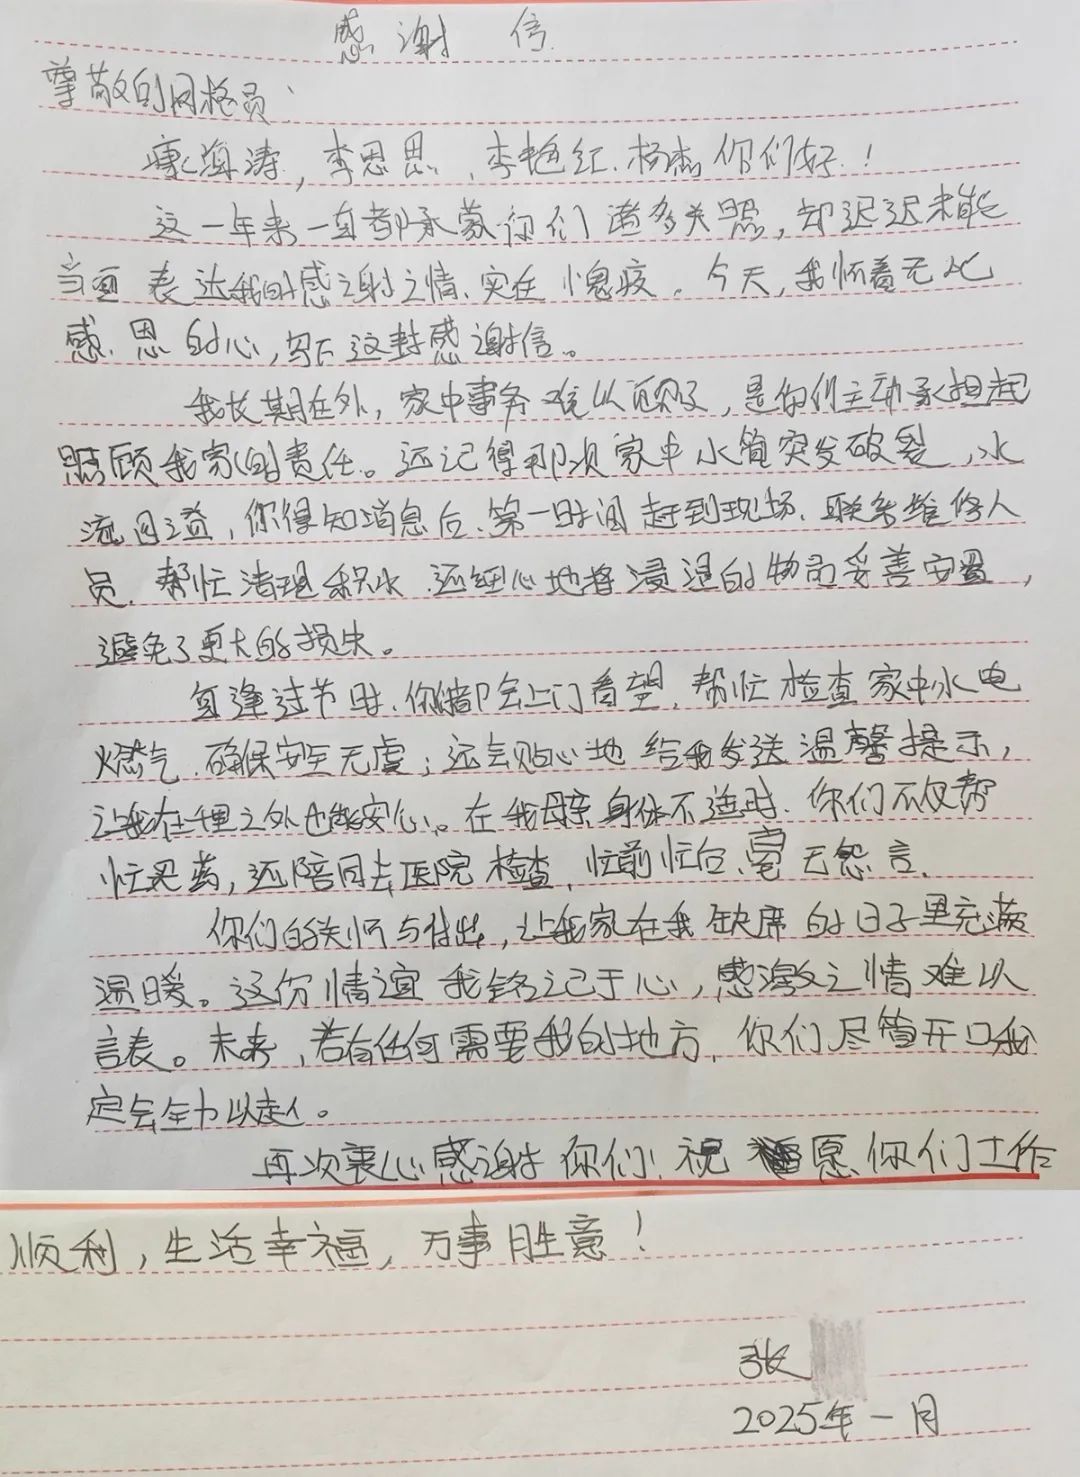 感谢信
尊敬的网格员：
康海涛，李思思，李艳红，杨杰你们好！
这一年来一直都承蒙你们诸多关照，却迟迟未能
当面表达我的感谢之情、实在愧疚。今天，我怀着无比
感恩的心，写下这封感谢信。
我长期在外，家中事务难以顾及，是你们主动承担起
照顾我家的责任。还记得那次家中水管突发破裂，水
流四溢，你得知消息后、第一时间赶到现场、联系维修人
员、帮忙清理积水、还细心地将浸湿的物品妥善安置，
避免了更大的损失。
每逢过节时、你们都会上门看望，帮忙检查家中水电
燃气、确保安全无虞；还会贴心地给我发送温馨提示，
让我在千里之外也能安心。在我母亲身体不适时、你们不仅帮
忙买药，还陪同去医院检查、忙前忙后、毫无怨言、
你们的关怀与付出，让我家在我缺席的日子里充满
温暖。这份情谊我铭记于心，感激之情难以
言表。未来，若有任何需要我的地方、你们尽管开口我
定会全力以赴。
再次衷心感谢你们！祝愿你们工作
顺利，生活幸福，万事胜意！
张
2025年一月